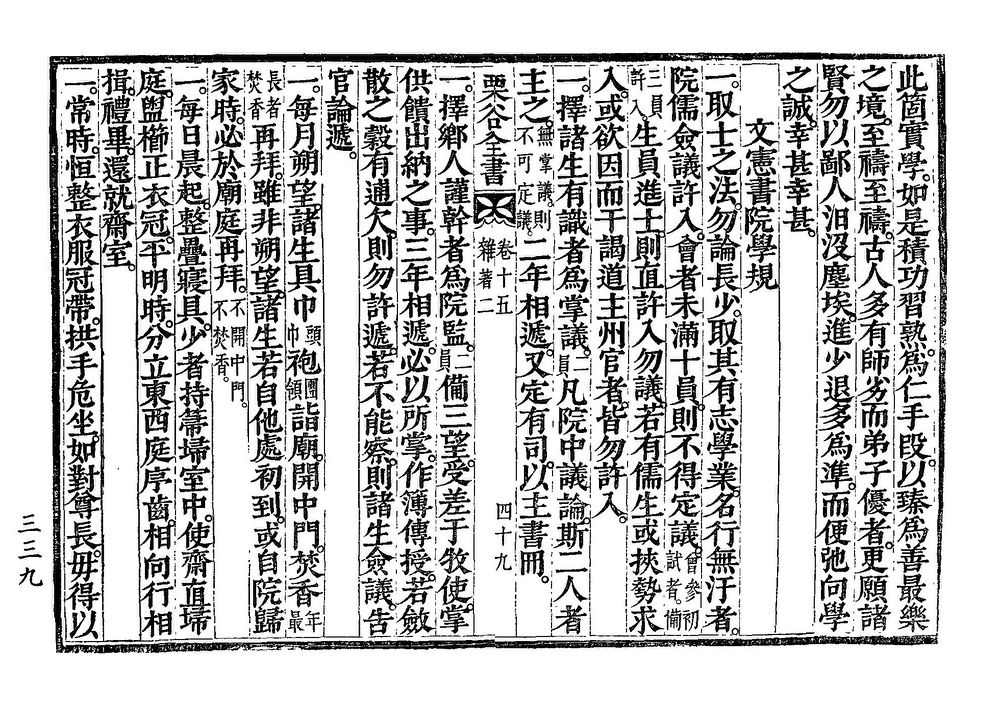 此箇實學。如是積功習熟。爲仁手段。以臻爲善最樂
之境。至禱至禱。古人多有師劣而弟子優者。更願諸
賢勿以鄙人汩沒塵埃。進少退多爲準。而便弛向學
之誠。幸甚幸甚。
文憲書院學規
一。取士之法。勿論長少。取其有志學業。名行無汙者。
院儒僉議許入。會者未滿十員。則不得定議。曾參初試者。備三員許入。
生員進士。則直許入勿議。若有儒生或挾勢求
入。或欲因而干謁道主州官者。皆勿許入。
一。擇諸生有識者爲掌議。二員 凡院中議論。斯二人者
主之。無掌議。則不可定議。 二年相遞。又定有司。以主書冊。
栗谷全書 卷十五 雜著二 四十九
一。擇鄉人謹幹者爲院監。二員 備三望。受差于牧使。掌
供饋出納之事。三年相遞。必以所掌。作簿傳授。若斂
散之穀有逋欠。則勿許遞。若不能察。則諸生僉議。告
官論遞。
一。每月朔望。諸生具巾頭巾袍團領詣廟。開中門。焚香年最
長者焚香再拜。雖非朔望。諸生若自他處初到。或自院歸
家時。必於廟庭再拜。不開中門。不焚香。
一。每日晨起。整疊寢具。少者持箒埽室中。使齋直埽
庭。盥櫛正衣冠。平明時。分立東西庭序齒。相向行相
揖。禮畢。還就齋室。
一。常時。恒整衣服冠帶。拱手危坐。如對尊長。毋得以
三三九